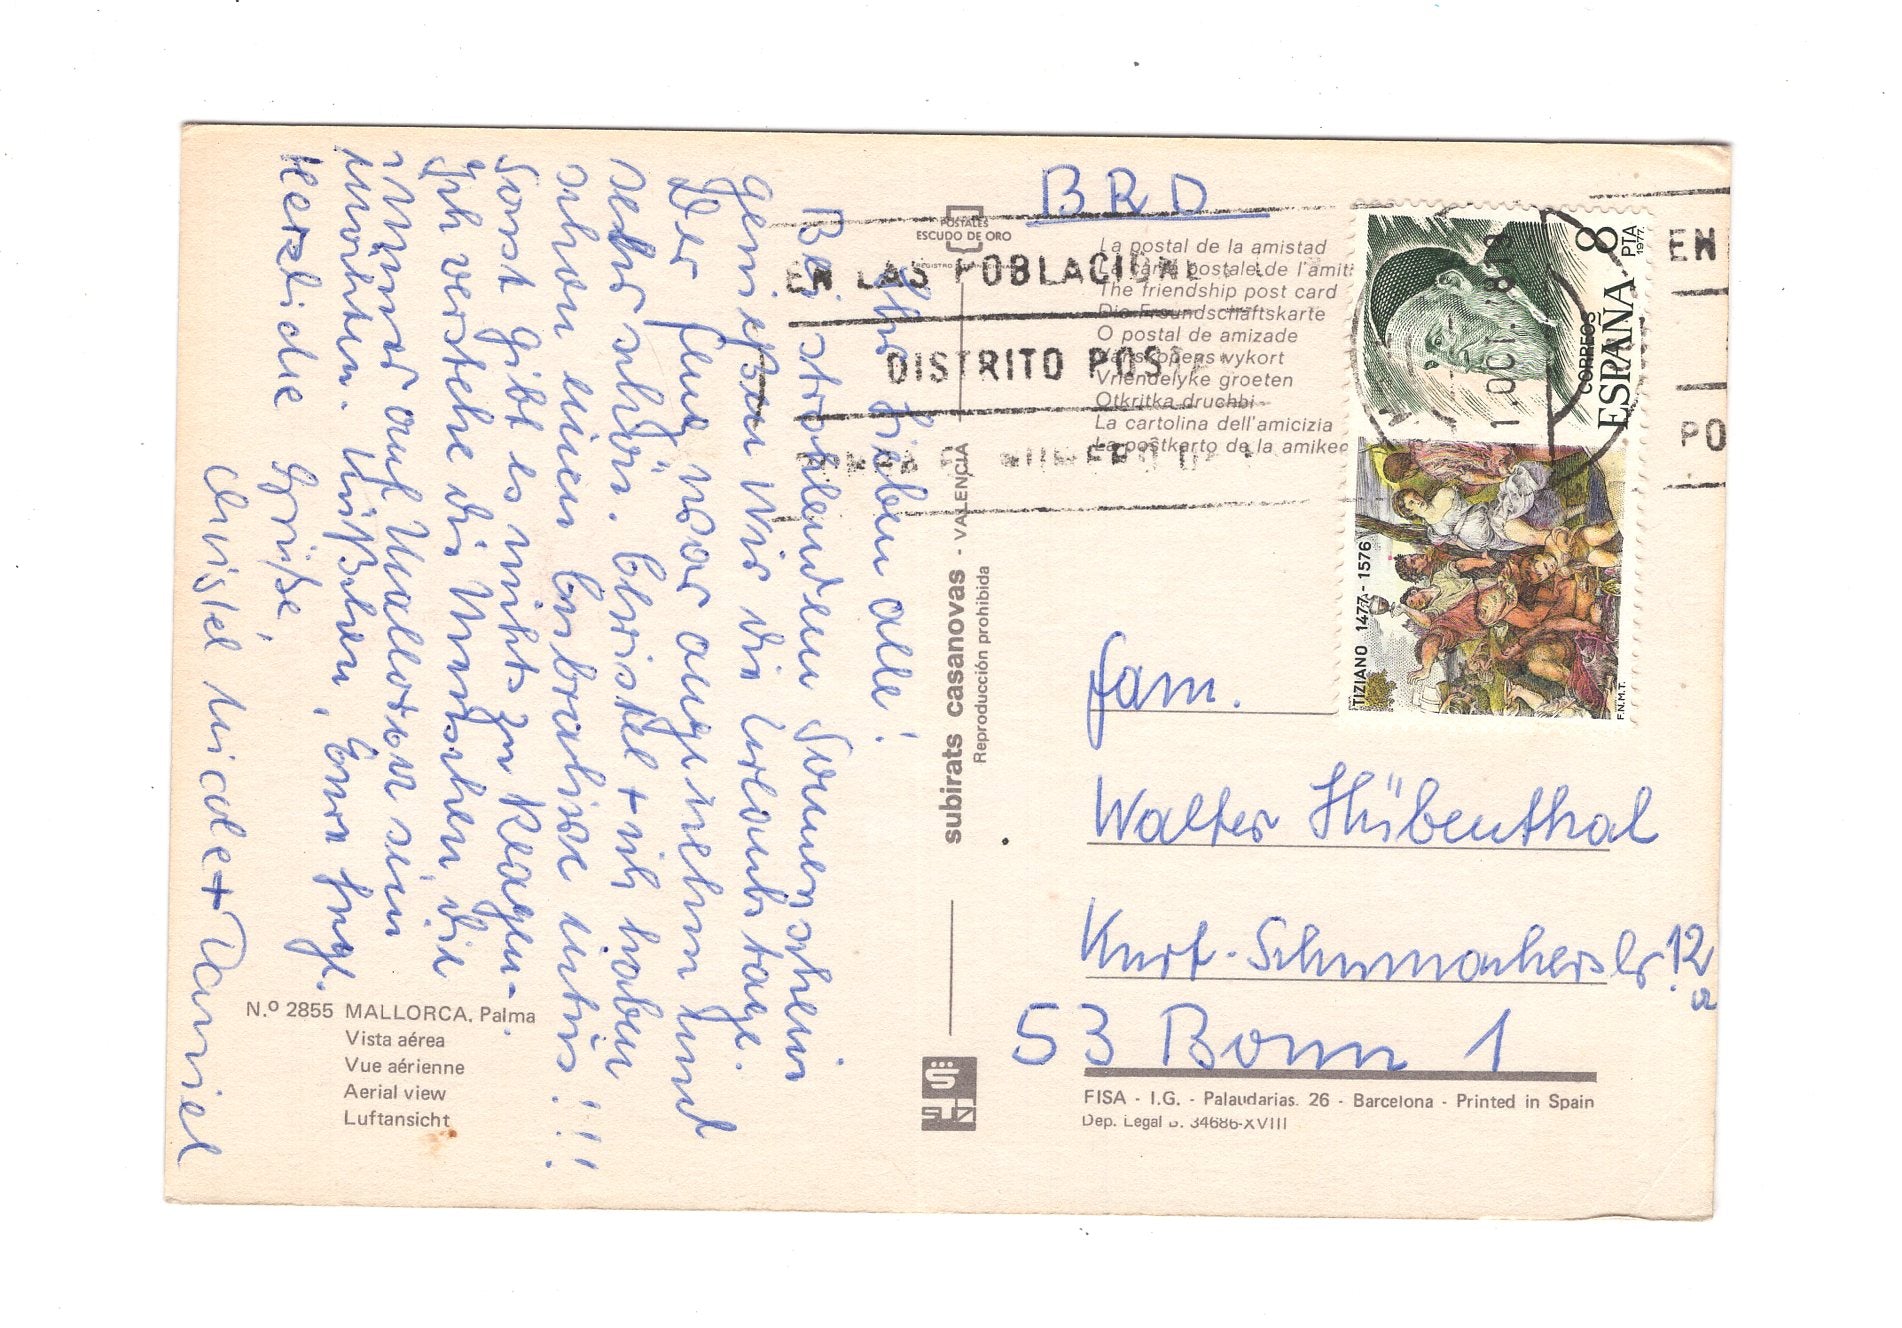 Ihr Lieben alle!
Bei strahlendem Sonnenschein
genießen wir die Urlaubstage.
Der Flug war angenehm und
sehr schön. Christel + ich haben
schon einen Carbralisse intus!!!
Sonst gibt es nichts zu klagen.
Ich verstehe die Menschen die
immer auf Mallorca sein
möchten. Küßchen, Eure Ingl.
Herzliche Grüße
Christel Nicole + Daniel
N.º 2855 MALLORCA. Palma
Vista aérea
Vue aérienne
Aerial view
Luftansicht
POSTALES
ESCUDO DE ORO
subirats casanovas - VALENCIA
Reproducción prohibida
BRD
La postal de la amistad
La carte postale de l'amit
The friendship post card
Die Freundschaftskarte
O postal de amizade
Vänskapens vykort
Vriendelyke groeten
Otkritka druchbi
La cartolina dell'amicizia
La postkarto de la amikec
EN LAS POBLACIONE
DISTRITO POSTA
NUMERO DE
EN
PO
1 OCT. 81
8 PTA
1977.
CORREOS
ESPAÑA
TIZIANO 1477-1576
F.N.M.T.
Fam.
Walter Hübenthal
Kurt-Schumacherstr. 12
a
53 Bonn 1
FISA - I.G. - Palaudarias. 26 - Barcelona - Printed in Spain
Dep. Legal B. 34686-XVIII